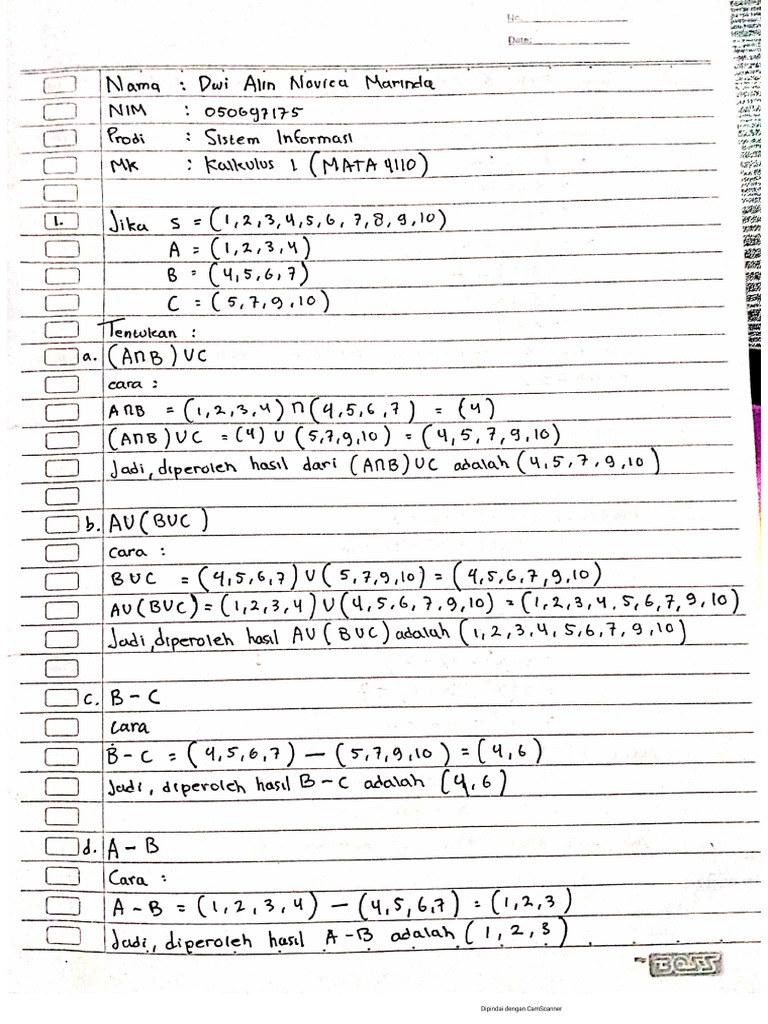 No.
Date:
Nama : Dwi Alin Novica Marinda
NIM : 050697175
Prodi : Sistem Informasi
MK : Kalkulus 1 (MATA 4110)
1. Jika S = (1,2,3,4,5,6,7,8,9,10)
A = (1,2,3,4)
B = (4,5,6,7)
C = (5,7,9,10)
Tentukan :
a. (A∩B)∪C
cara :
A∩B = (1,2,3,4) ∩ (4,5,6,7) = (4)
(A∩B)∪C = (4) ∪ (5,7,9,10) = (4,5,7,9,10)
Jadi, diperoleh hasil dari (A∩B)∪C adalah (4,5,7,9,10)
b. A∪(B∪C)
Cara :
B∪C = (4,5,6,7) ∪ (5,7,9,10) = (4,5,6,7,9,10)
A∪(B∪C) = (1,2,3,4) ∪ (4,5,6,7,9,10) = (1,2,3,4,5,6,7,9,10)
Jadi, diperoleh hasil A∪(B∪C) adalah (1,2,3,4,5,6,7,9,10)
c. B - C
Cara
B - C = (4,5,6,7) — (5,7,9,10) = (4,6)
Jadi, diperoleh hasil B - C adalah (4,6)
d. A - B
Cara :
A - B = (1,2,3,4) — (4,5,6,7) = (1,2,3)
Jadi, diperoleh hasil A - B adalah (1,2,3)
BOSS
Dipindai dengan CamScanner